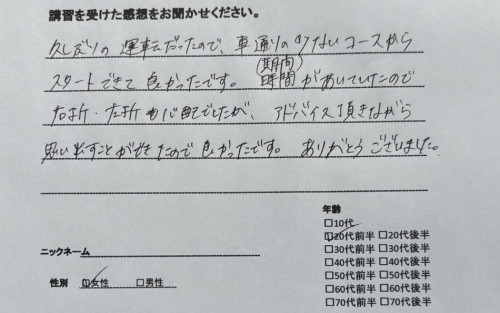 講習を受けた感想をお聞かせください。
久しぶりの運転だったので、車通りの少ないコースから
(期間)
スタートできて良かったです。時間があいていたので
右折・左折も心配でしたが、アドバイス頂きながら
思い出すことができたので良かったです。ありがとうございました。
年齢
□10代
☑20代前半 □20代後半
□30代前半 □30代後半
ニックネーム
□40代前半 □40代後半
性別 ☑女性 □男性
□50代前半 □50代後半
□60代前半 □60代後半
□70代前半 □70代後半